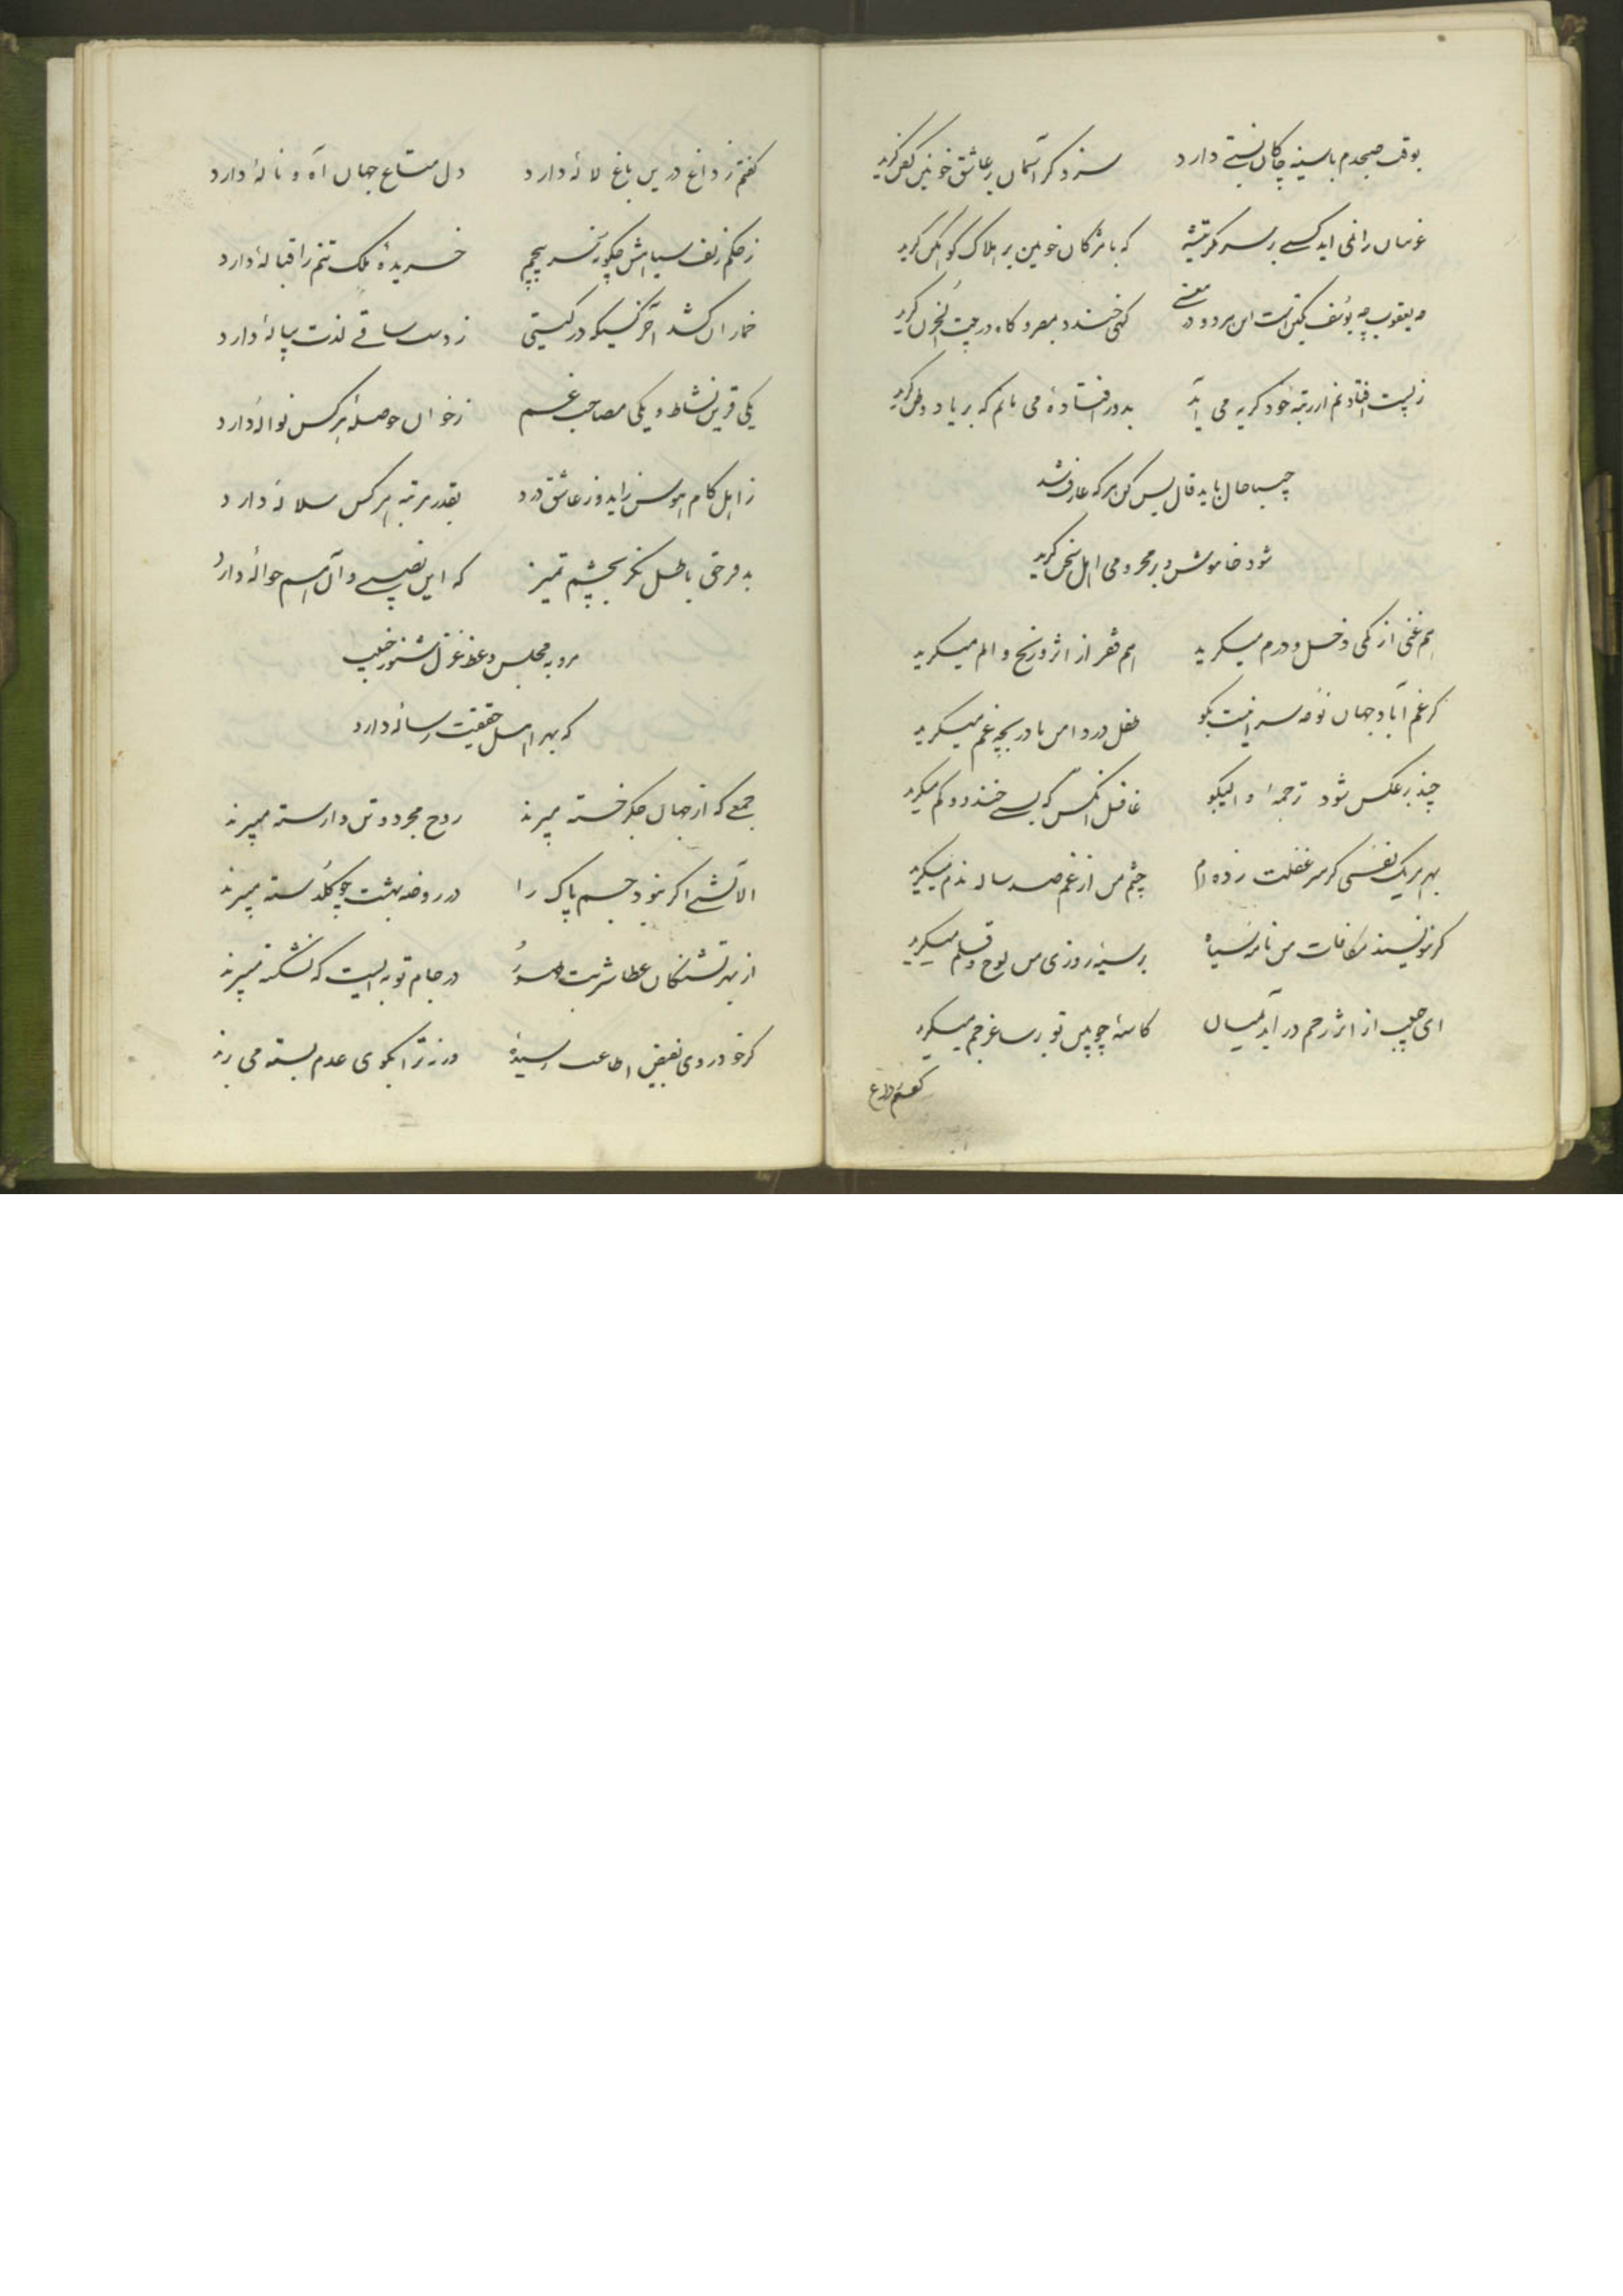 بوقت صبحدم با سینه چاکان نسبتی دارد سزد گر آسمان بر عاشق خونین کفن گرید
غریبان را نمی اید کسے بر سر مگر تیشه که با مژگان خونین بر هلاک کوهکن گرید
چه یعقوب چه یوسف این هر دو در معنے گهی خندد بمصر و گاه در بیت الحزن گرید
ز پست افتادنم از رتبه خود گریه می آید بدور افتاده می مانم که بر یاد وطن گرید
حال باید قال بس کن هر که عارف شد
شود خاموش و بر محرومی اهل سخن گرید
هم غنی از کمی دخل و درم میگرید هم فقیر از اثر رنج و الم میگرید
گر غم آباد جهان نوحه سرا نیست بگو طفل در دامن مادر بچه غم میگرید
چند بر عکس شود ترجمه غافل انکس که بسے خندد و کم میگرید
بهر یک نفسی کز سر غفلت زده ام چشم من از غم صد ساله ندم میگرید
گر نویسند مکافات من نامه سیاه بر سیه روزی من لوح و قلم میگرید
ای حبیب از اثر رحم در آید بمیان کاسهٔ چوبین تو بر ساغر جم میگرید
گفتم ز داغ
گفتم ز داغ درین باغ لالهٔ دارد دل متاع جهان آه و نالهٔ دارد
ز حکم زلف سیاهش چگونه سر پیچم خریدهٔ ملک تنم را قبالهٔ دارد
خمار آن کشد آخر کسیکه در گیتی ز دست ساقے لذت پیالهٔ دارد
یکی قرین نشاط و یکی مصاحب غم ز خوان حوصله هر کس نوالهٔ دارد
ز اهل کام هوس زاید و ز عاشق درد بقدر مرتبه هر کس سلالهٔ دارد
به فرق حق باطل نگر بچشم تمیز که این نصیبے و آن هم حوالهٔ دارد
مرو به مجلس وعظ غزل شنو ز حبیب
که بهر اهل حقیقت رسالهٔ دارد
جمعے که از جهان جگر خسته میپرند روح مجرد و تن وارسته میپرند
الایشے اگر نبود جسم پاک را در روضه بهشت چو گلدسته میپرند
از بهر تشنگان عطا شربت طهور در جام توبه ایست که نشکسته میبرند
گر خود روی بفیض اطاعت رسیدهٔ ورنه ترا بکوی عدم بسته می برند